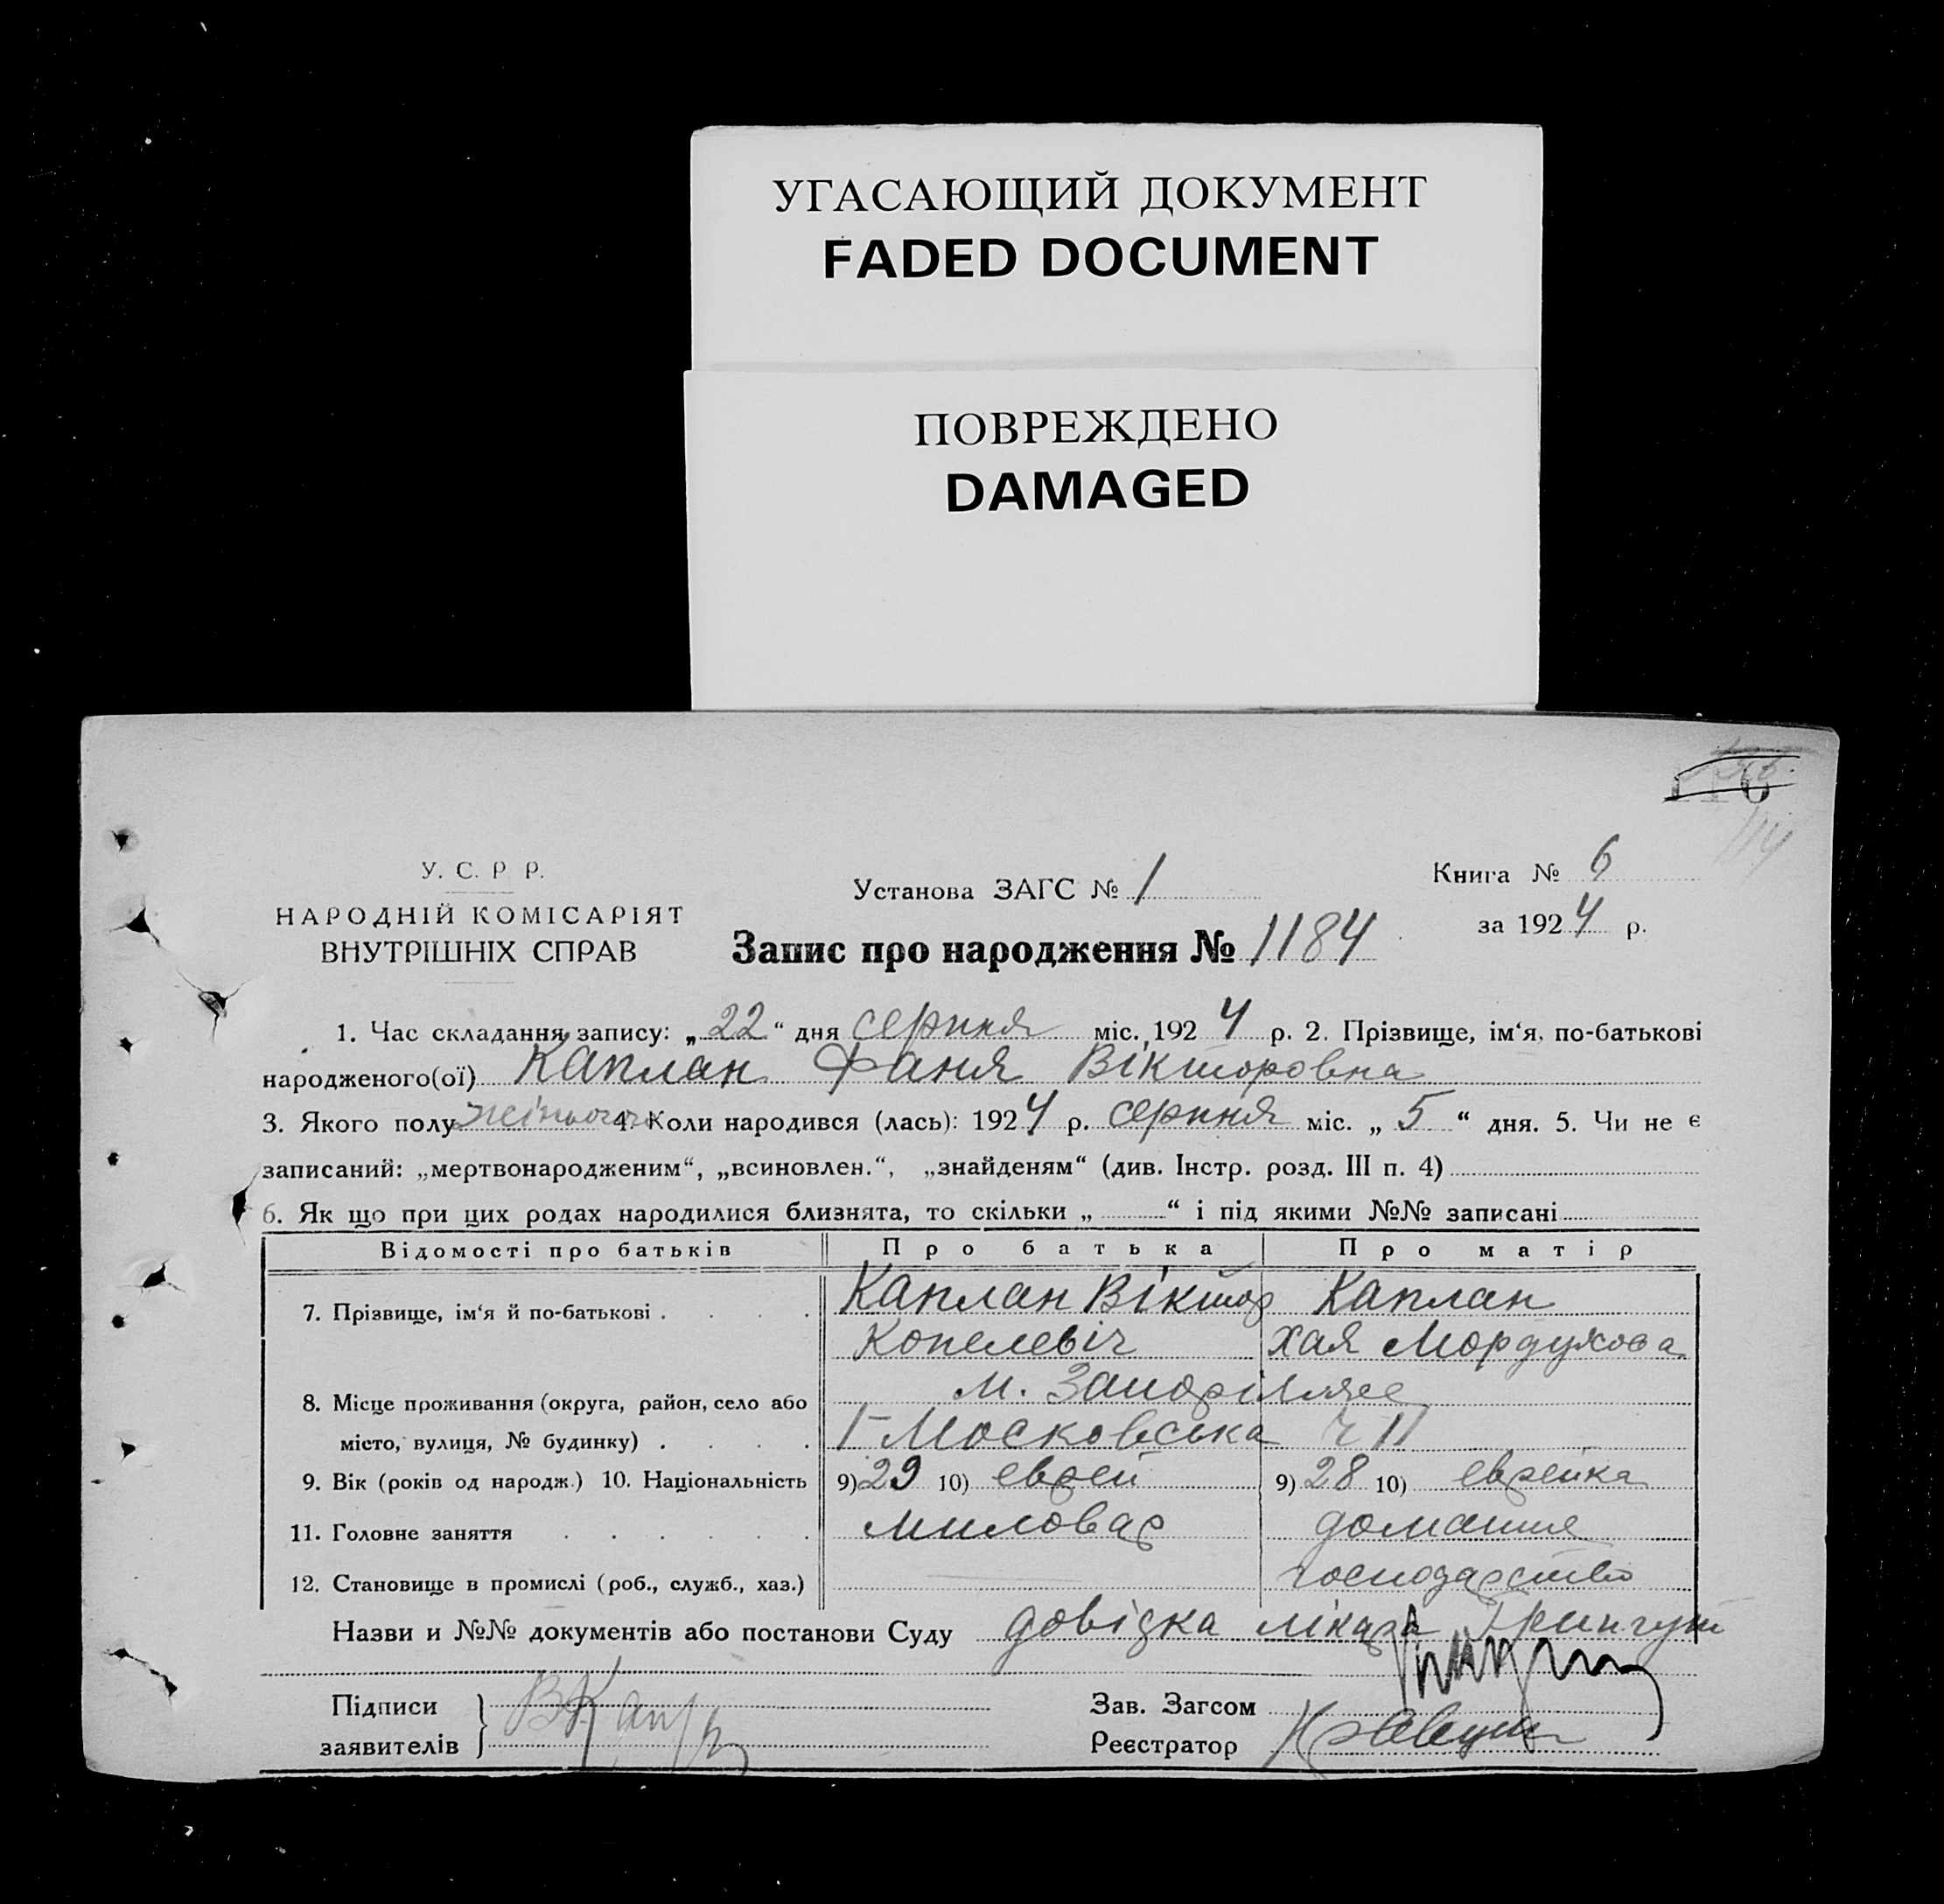 УГАСАЮЩИЙ ДОКУМЕНТ
FADED DOCUMENT
ПОВРЕЖДЕНО
DAMAGED
У. С. Р Р.
НАРОДНІЙ КОМІСАРІЯТ
ВНУТРІШНІХ СПРАВ
Установа ЗАГС № 1
Книга № 6
за 1924 р.
Запис про народження № 1184
1. Час складання запису: „22“ дня серпня міс. 1924 р. 2. Прізвище, ім‘я, по-батькові
народженого(ої) Каплан Фаня Вікторовна
3. Якого полу жіночого 4. Коли народився (лась): 1924 р. серпня міс. „5“ дня. 5. Чи не є
записаний: „мертвонародженим“, „всиновлен.“, „знайденям“ (див. Інстр. розд. III п. 4)
6. Як що при цих родах народилися близнята, то скільки „ “ і під якими №№ записані
Відомості про батьків Про батька Про матір
7. Прізвище, ім‘я й по-батькові . . . . Каплан Віктор Каплан
Копелевіч Хая Мордухова
8. Місце проживання (округа, район, село або м. Запоріжже
місто, вулиця, № будинку) . . . . Московська 11
9. Вік (років од народж.) 10. Національність 9) 29 10) еврей 9) 28 10) еврейка
11. Головне заняття . . . . . . миловар домашне
12. Становище в промислі (роб., служб., хаз.) господарство
Назви и №№ документів або постанови Суду довідка лікаря
Підписи
заявителів
Зав. Загсом
Реєстратор